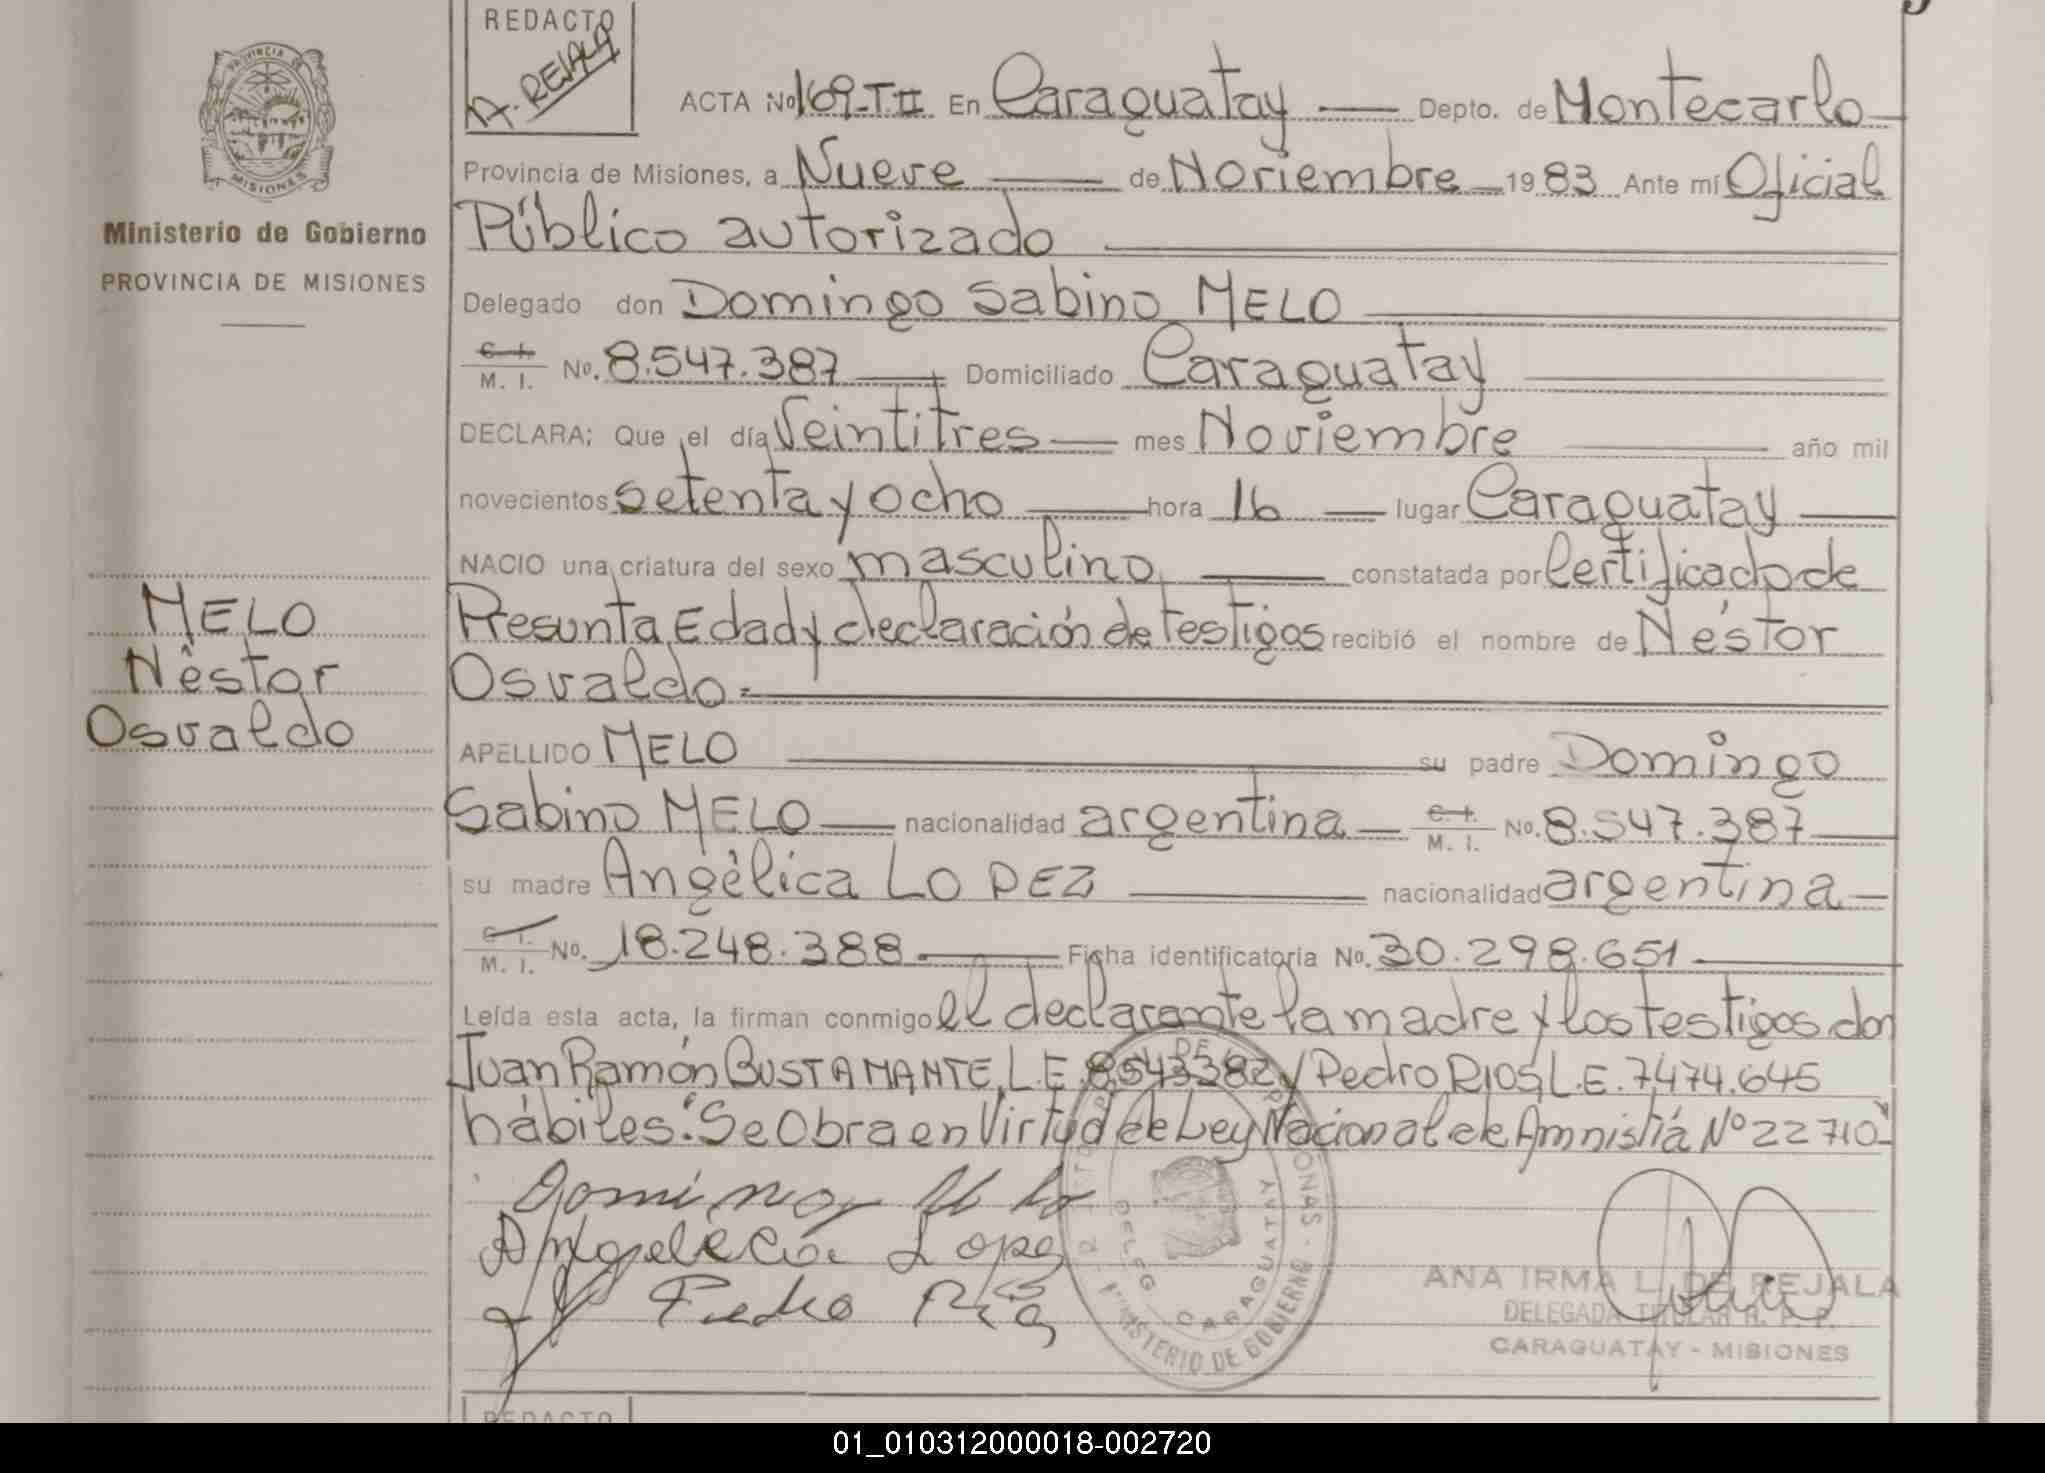 REDACTO
A. REJALA
PROVINCIA
MISIONES
Ministerio de Gobierno
PROVINCIA DE MISIONES
MELO
Néstor
Osvaldo
ACTA No 169-T.II En Caraguatay — Depto. de Montecarlo
Provincia de Misiones, a Nueve — de Noviembre 1983 Ante mí Oficial
Público autorizado
Delegado don Domingo Sabino MELO
C. I. M. I. No. 8.547.387 — Domiciliado Caraguatay
DECLARA: Que el día Veintitres — mes Noviembre — año mil
novecientos setenta y ocho — hora 16 — lugar Caraguatay —
NACIO una criatura del sexo masculino — constatada por Certificado de
Presunta Edad y declaración de testigos recibió el nombre de Néstor
Osvaldo.=
APELLIDO MELO — su padre Domingo
Sabino MELO — nacionalidad argentina — C. I. M. I. No. 8.547.387 —
su madre Angélica LOPEZ — nacionalidad argentina —
C. I. M. I. No. 18.248.388 — Ficha identificatoria No. 30.298.651 —
Leída esta acta, la firman conmigo el declarante la madre y los testigos don
Juan Ramón BUSTAMANTE, L.E. 8543382 y Pedro RIOS, L.E. 7474.645
hábiles. "Se Obra en Virtud de Ley Nacional de Amnistiá Nº 22710"
Domingo Melo
Angelica Lopez
Pedro Rios
DELEG. CARAGUATAY
MINISTERIO DE GOBIERNO
ANA IRMA L. DE REJALA
DELEGADA TITULAR R. P. P.
CARAGUATAY - MISIONES
REDACTO
01_010312000018-002720